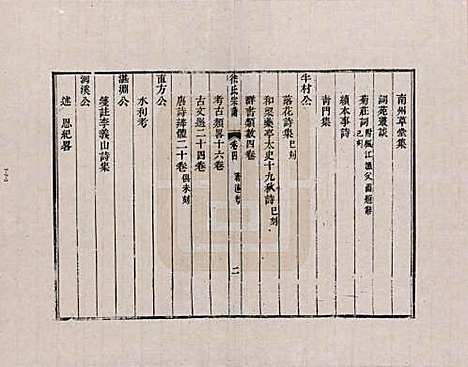 南州草堂集
詞苑叢談
菊莊詞 已刻 附楓江漁父圖題辭
續本事詩
青門集
牛村公
落花詩集 已刻
和梁藥亭太史十九秋詩 已刻
群書類數四卷
徐氏宗譜 卷四 著述考 二
考古類畧十六卷
古文選二十四卷
唐詩歸體二十卷 俱未刻
直方公
水利考
湛淵公
箋註李義山詩集
洄溪公
述 恩紀畧